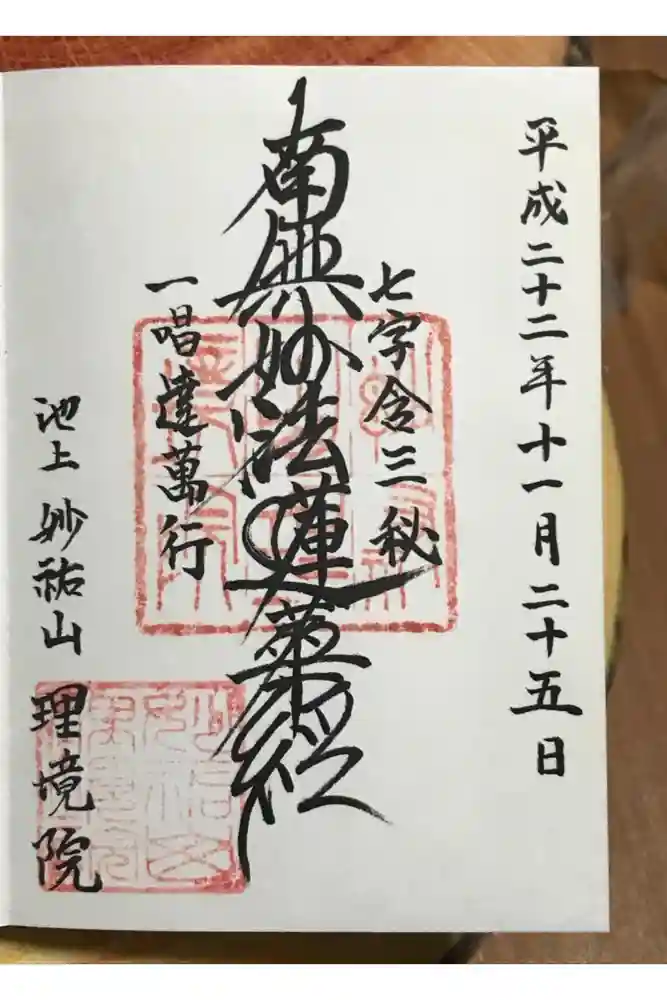 平成二十二年十一月二十五日
七字含三秘
南無妙法蓮華経
一唱達萬行
池上 妙祐山 理境院